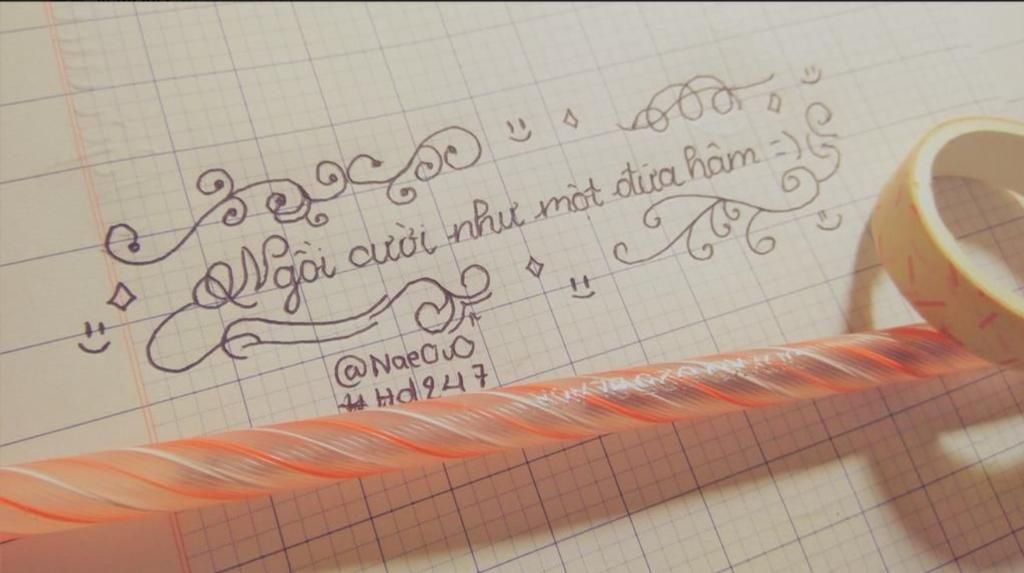 Ngồi cười như một đứa hâm =)
@NaeOuO
#Hd247